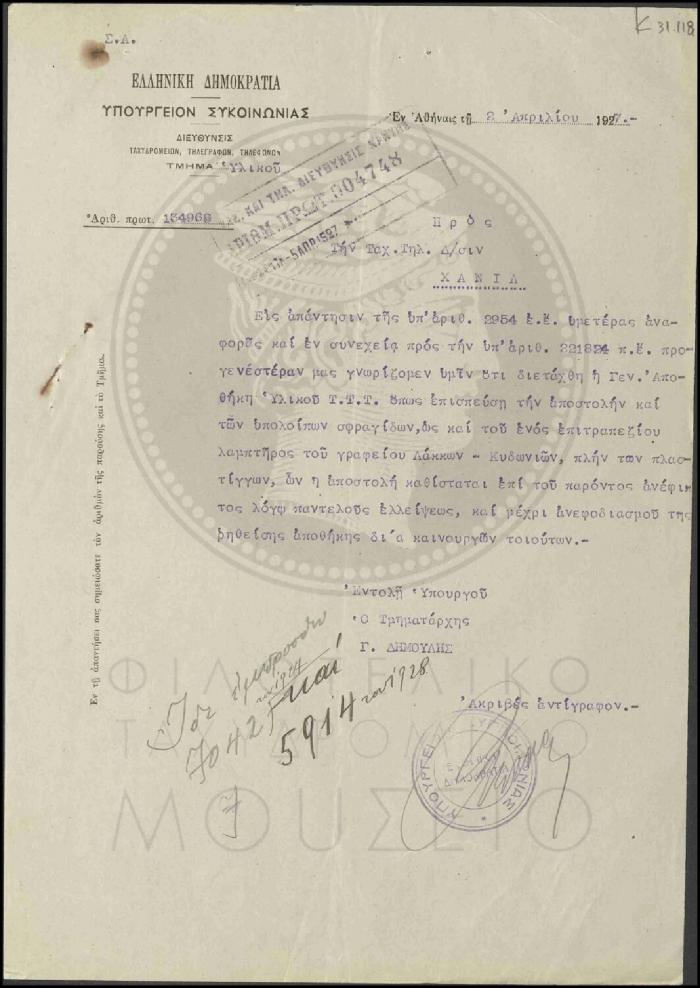 K 31.118
Σ.Α.
ΕΛΛΗΝΙΚΗ ΔΗΜΟΚΡΑΤΙΑ
ΥΠΟΥΡΓΕΙΟΝ ΣΥΚΟΙΝΩΝΙΑΣ
ΔΙΕΥΘΥΝΣΙΣ
ΤΑΧΥΔΡΟΜΕΙΩΝ, ΤΗΛΕΓΡΑΦΩΝ, ΤΗΛΕΦΩΝΩΝ
ΤΜΗΜΑ Ὑλικοῦ
Ἀριθ. πρωτ. 134969
Ἐν Ἀθήναις τῇ 2 Ἀπριλίου 1927.-
ΚΑΙ ΤΗΛ. ΔΙΕΥΘΥΝΣΙΣ ΚΡΗΤΗΣ
ΑΡΙΘΜ. ΠΡΩΤ. 004748
5 ΑΠΡ 1927
Πρός
Τήν Ταχ.Τηλ. Δ/σιν
ΧΑΝΙΑ
Εἰς ἀπάντησιν τῆς ὑπ'ἀριθ. 2954 ἐ.ἔ. ὑμετέρας ἀνα-
φορᾶς καί ἐν συνεχείᾳ πρός τήν ὑπ'ἀριθ. 221824 π.ἔ. προ-
γενέστέραν μας γνωρίζομεν ὑμῖν ὅτι διετάχθη ἡ Γεν.Ἀπο-
θήκη Ὑλικοῦ Τ.Τ.Τ. ὅπως ἐπισπεύσῃ τήν ἀποστολήν καί
τῶν ὑπολοίπων σφραγίδων,ὡς καί τοῦ ἑνός ἐπιτραπεζίου
λαμπτῆρος τοῦ γραφείου Λάκκων - Κυδωνιῶν, πλήν τῶν πλασ-
τίγγων, ὧν ἡ ἀποστολή καθίσταται ἐπί τοῦ παρόντος ἀνέφικ
τος λόγῳ παντελοῦς ἐλλείψεως, καί μέχρι ἀνεφοδιασμοῦ τῆς
ρηθείσης ἀποθήκης δι'ἀ καινουργῶν τοιούτων.-
Ἐντολῇ Ὑπουργοῦ
Ὁ Τμηματάρχης
Γ. ΔΗΜΟΥΛΗΣ
Ἀκριβές ἀντίγραφον.-
Ἐν τῇ ἀπαντήσει σας σημειώσατε τὸν ἀριθμὸν τῆς παρούσης καὶ τὸ Τμῆμα.
7042 καί
5914 του 1928
ΥΠΟΥΡΓΕΙΟΝ ΣΥΓΚΟΙΝΩΝΙΑΣ
ΦΙΛΟΤΕΛΙΚΟ
ΤΑΧΥΔΡΟΜΙΚΟ
ΜΟΥΣΕΙΟ